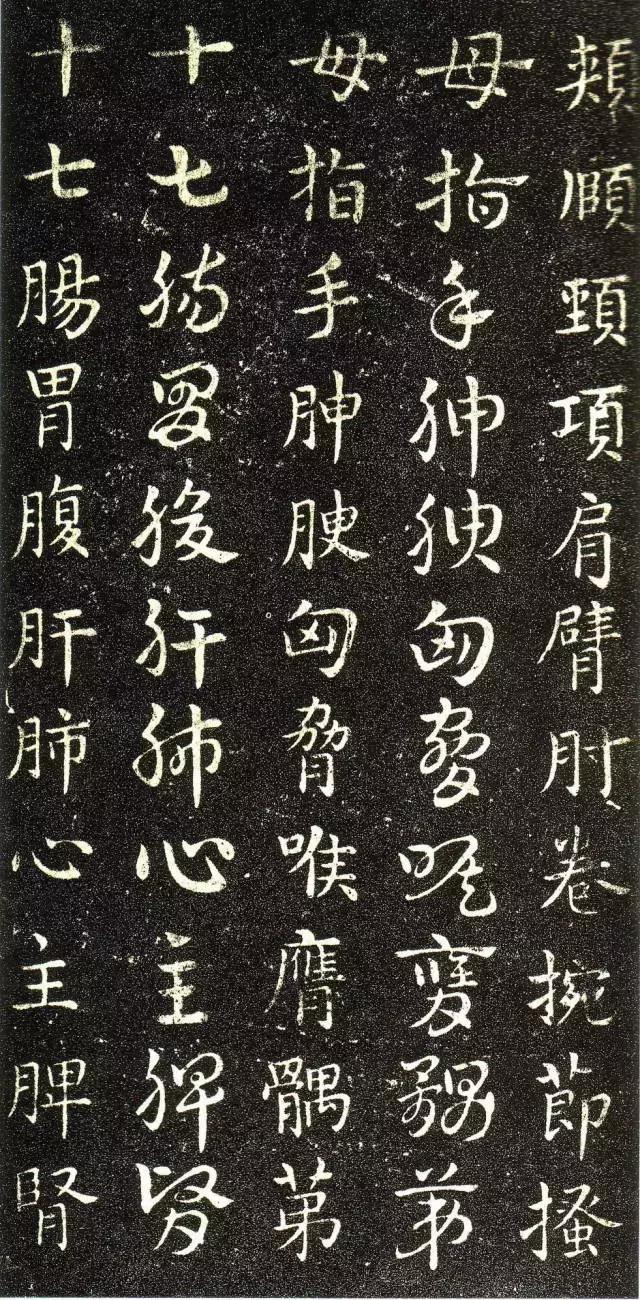 頰頤頸項肩臂肘卷捥節搔
母指手胂腴匈脅喉膺髃第
母指手胂腴匈脅喉膺髃第
十七腸胃腹肝肺心主脾腎
十七腸胃腹肝肺心主脾腎